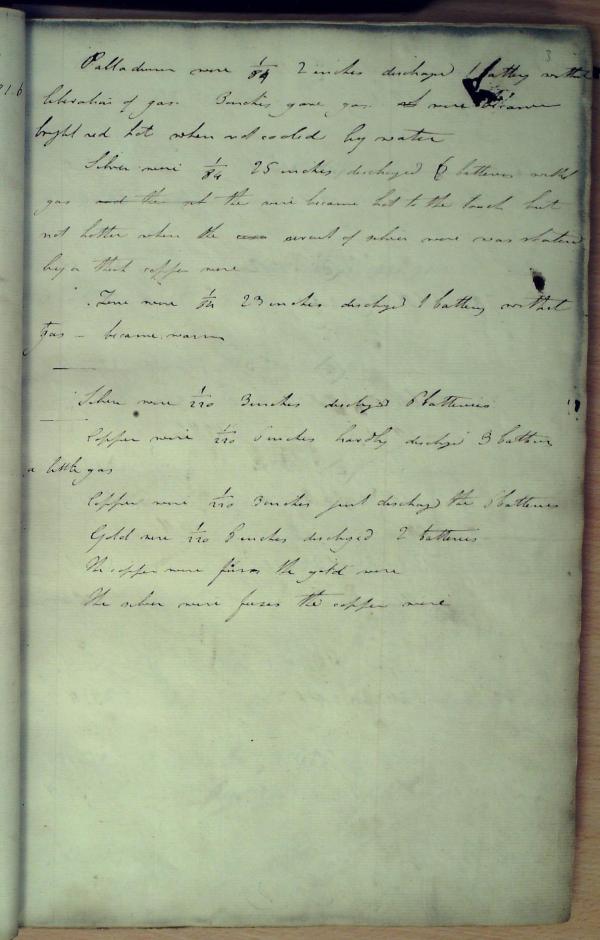 3
Palladium wire 1/84 2 inches discharged 1 battery without
liberation of gas. 3 inches gave gas. wire became
bright red hot when not cooled by water
Silver wire 1/84 25 inches discharged 6 batteries without
gas and the the wire became hot to the touch but
not hotter when the circuit of silver wire was
by a thick copper wire
Zinc wire 1/84 23 inches discharged 1 battery without
gas - became warm
Silver wire 1/220 3 inches discharged 6 batteries
Copper wire 1/220 6 inches hardly discharged 3 batteries
a little gas
Copper wire 1/220 3 inches just discharged the batteries
Gold wire 1/220 inches discharged 2 batteries
The copper wire fuses the gold wire
The silver wire fuses the copper wire